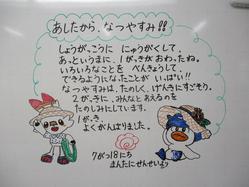 あしたから、なつやすみ!!
しょうがっこうに にゅうがくして、
あっというまに、1がっきがおわったね。
いろいろなことを べんきょうして、
できるようになったことが いっぱい!!
なつやすみは、たのしく、げんきにすごそう。
2がっきに、みんなと あえるのを
たのしみにしています。
1がっき、
よくがんばりました。
7がつ18にち